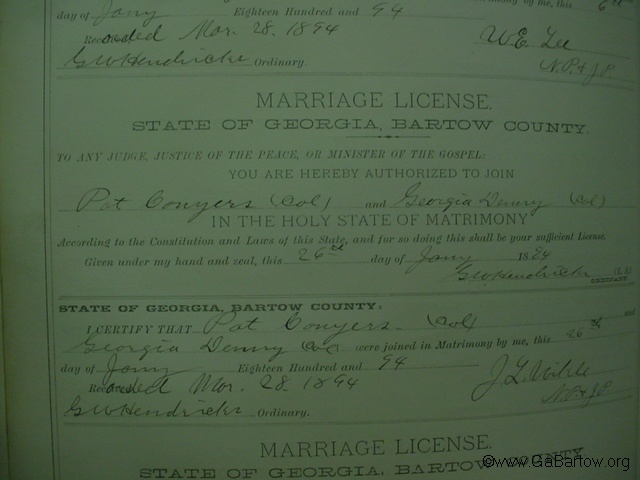 Matrimony by me, this 6th
day of Jany Eighteen Hundred and 94
Recorded Mar. 28. 1894
W.E. Lee
G W Hendricks Ordinary.
N.P. & J.P.
MARRIAGE LICENSE.
STATE OF GEORGIA, BARTOW COUNTY.
TO ANY JUDGE, JUSTICE OF THE PEACE, OR MINISTER OF THE GOSPEL:
YOU ARE HEREBY AUTHORIZED TO JOIN
Pat Conyers (Col) and Georgia Denny (Col)
IN THE HOLY STATE OF MATRIMONY
According to the Constitution and Laws of this State, and for so doing this shall be your sufficient License.
Given under my hand and seal, this 26th day of Jany 1894
G W Hendricks (L.S.)
ORDINARY
STATE OF GEORGIA, BARTOW COUNTY.
I CERTIFY THAT Pat Conyers (Col) and
Georgia Denny (Col) were joined in Matrimony by me, this 26th
day of Jany Eighteen Hundred and 94
Recorded Mar. 28. 1894
J.L.
N.P. & J.P.
G W Hendricks Ordinary.
MARRIAGE LICENSE.
STATE OF GEORGIA, BARTOW COUNTY
©www.GaBartow.org